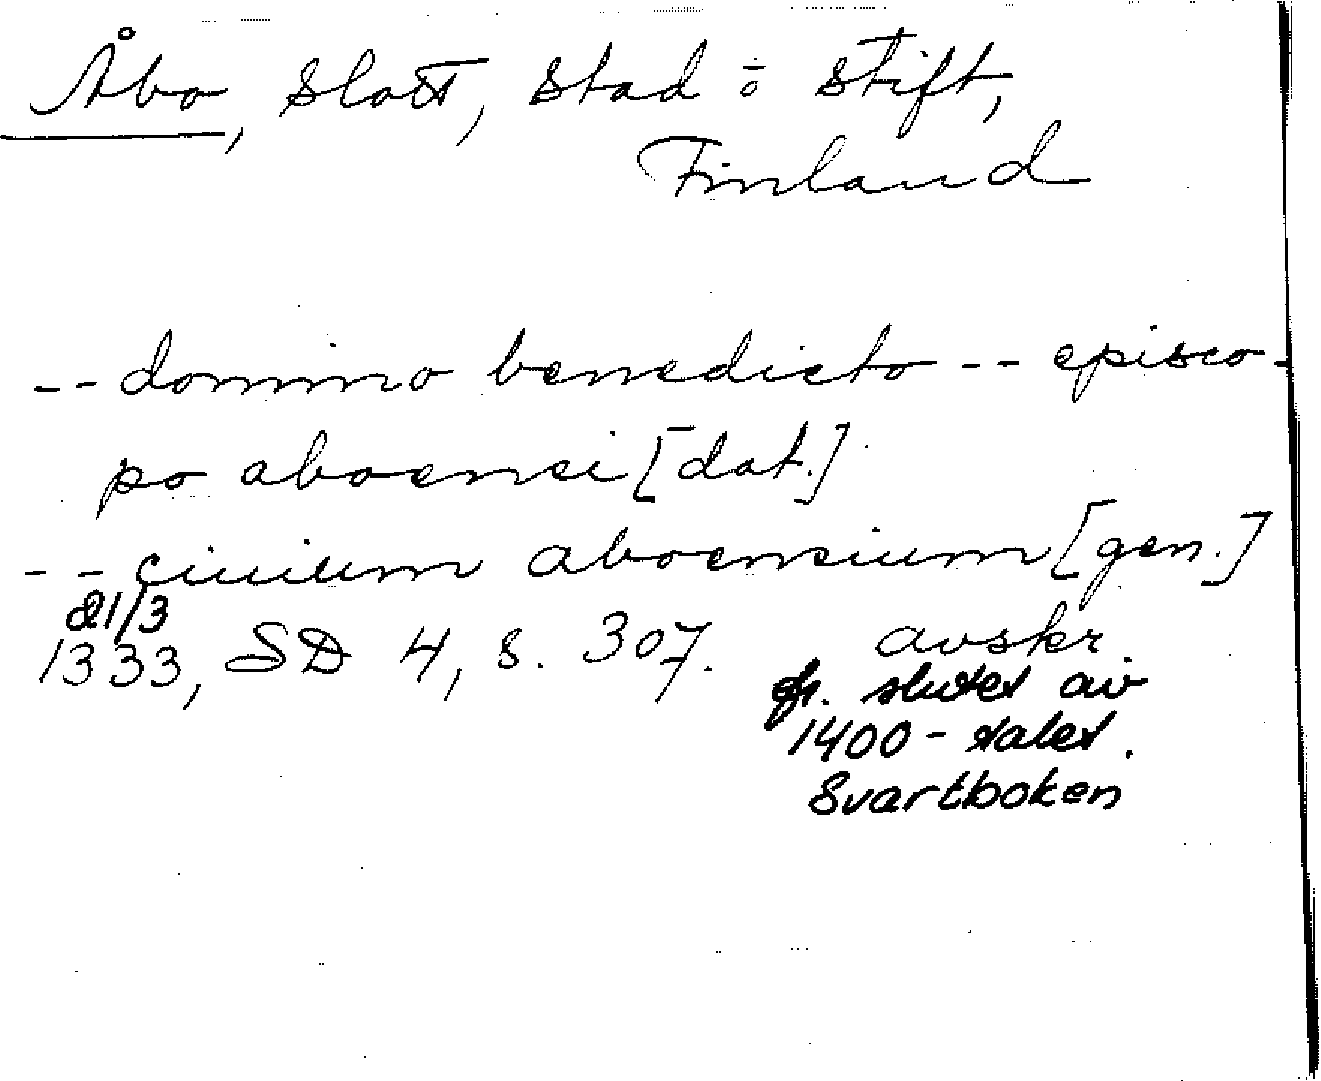 Åbo, slott, stad o stift,
Finland
-- domino benedicto -- episco-
po aboensi [dat.]
-- ciuium aboensium [gen.]
21/3
1333, SD 4, s. 307. avskr.
fr. slutet av
1400-talet.
Svartboken